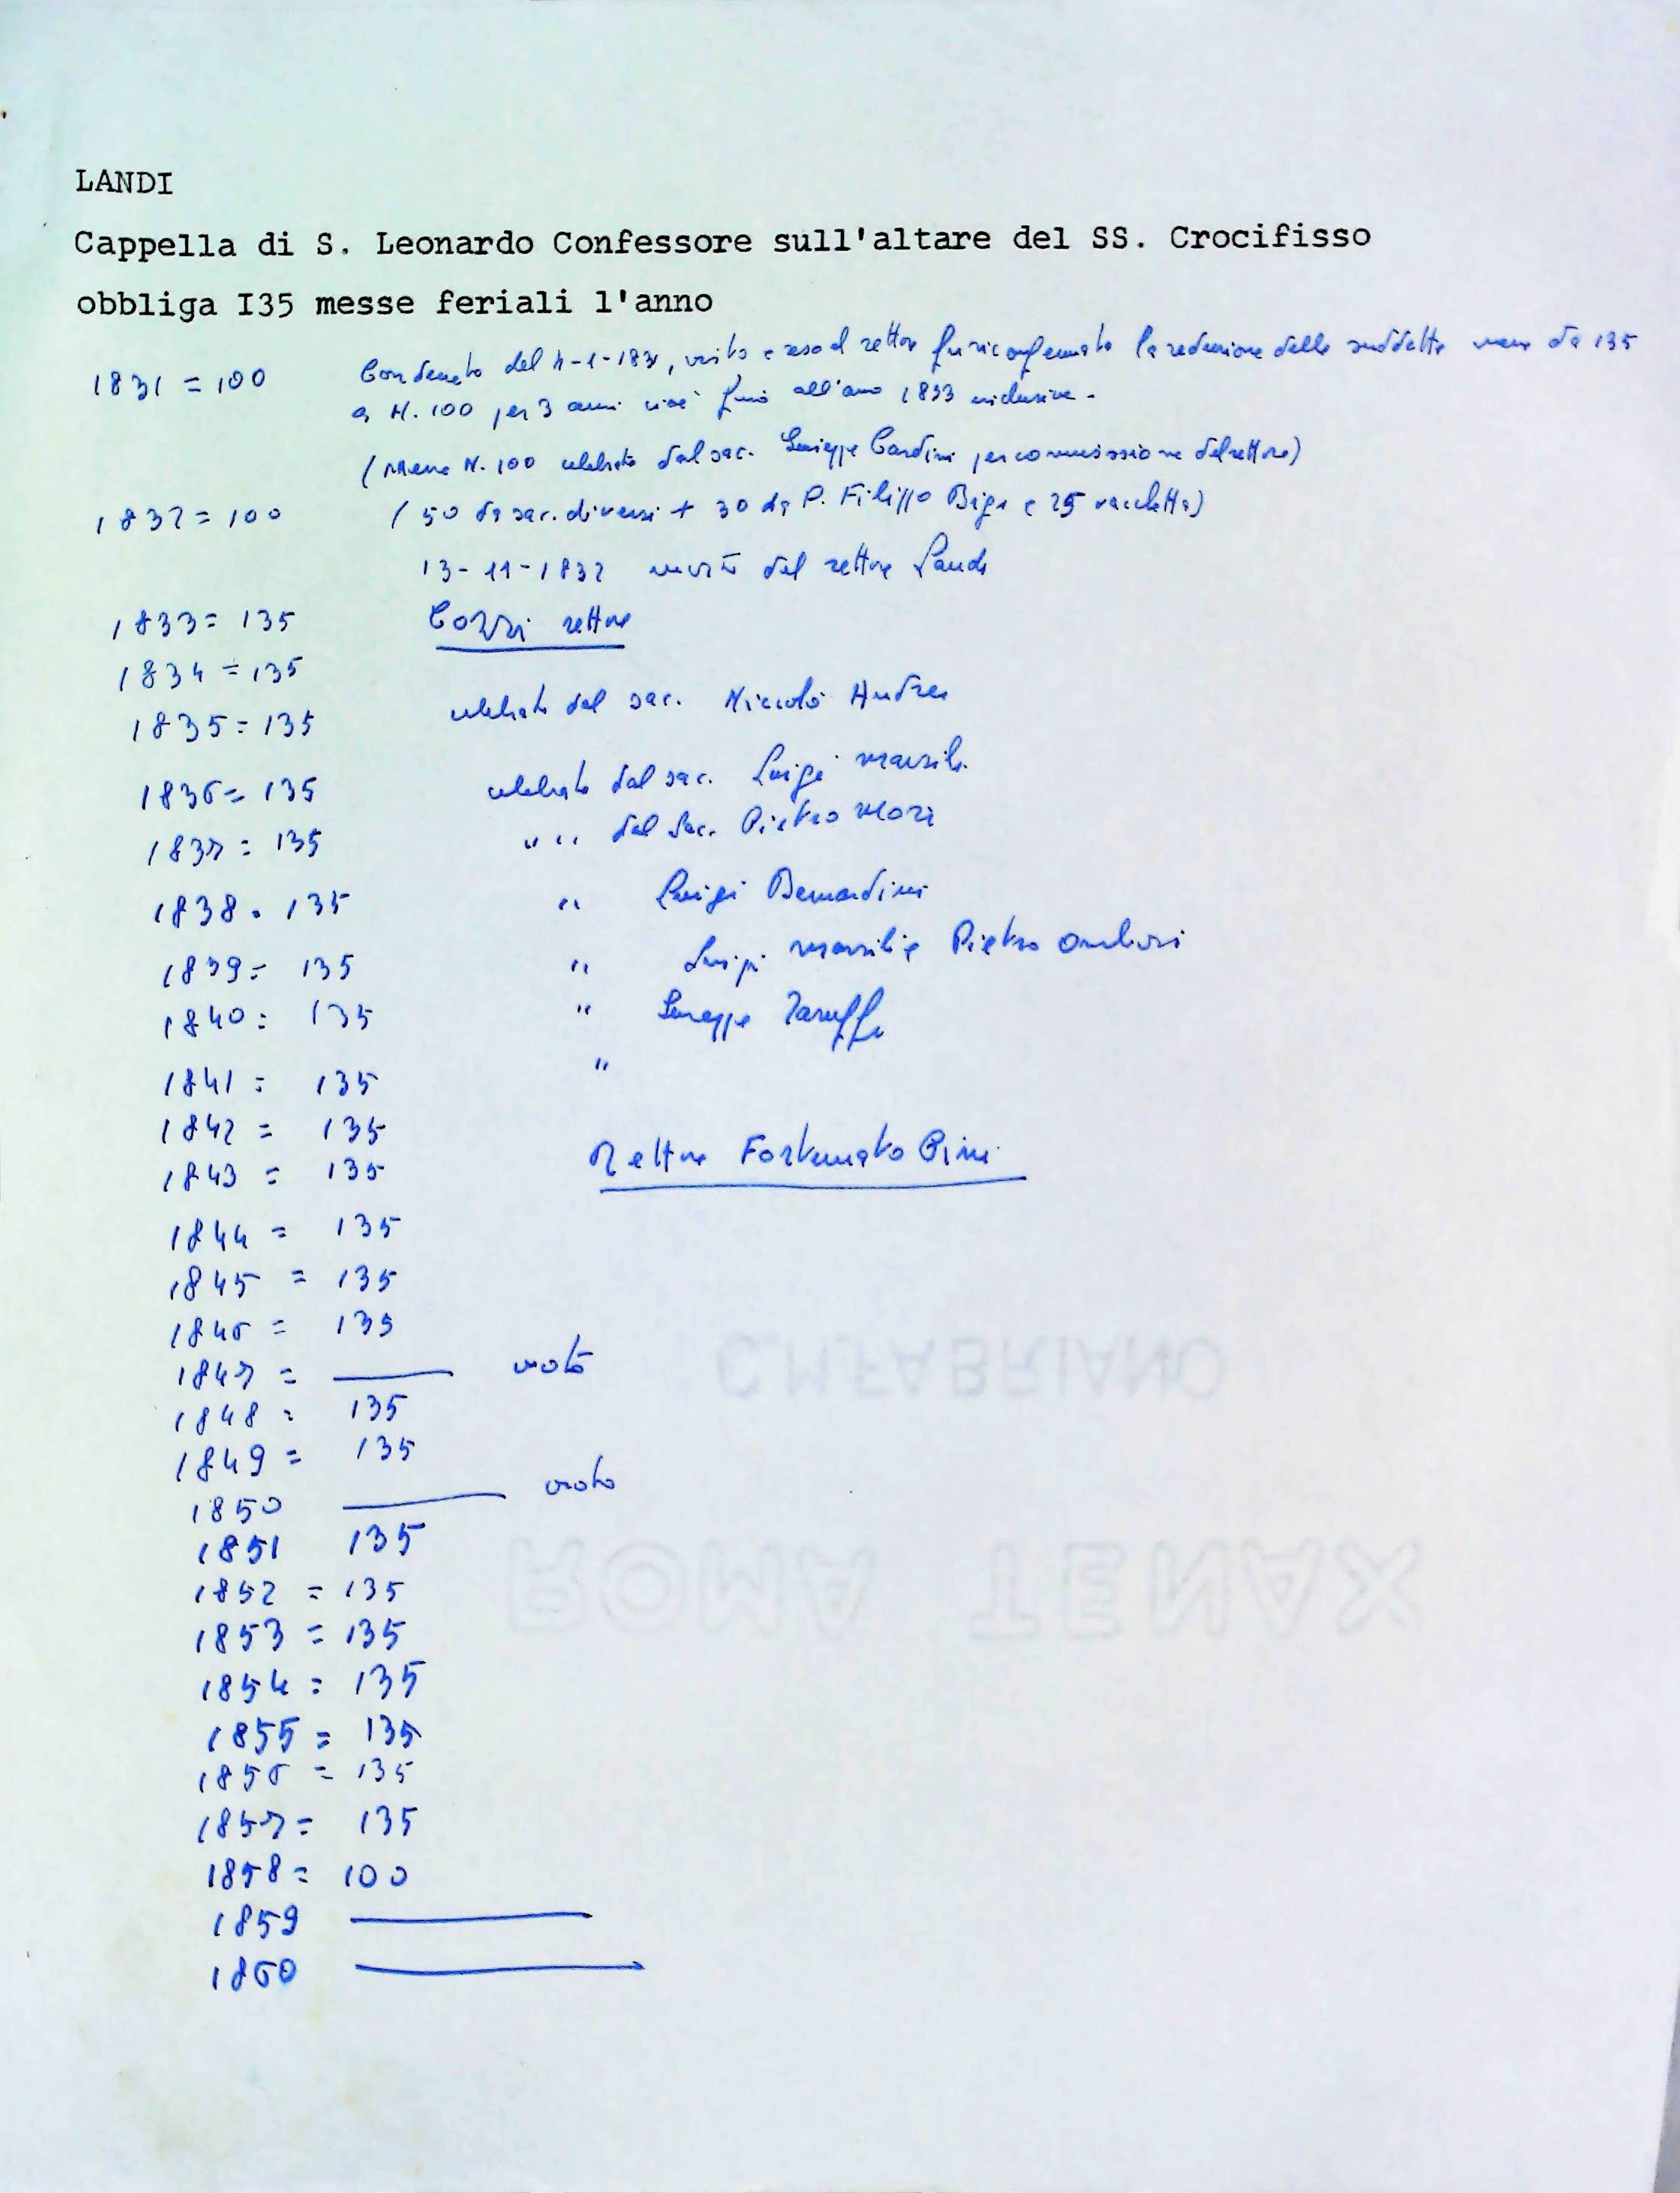 LANDI
Cappella di S. Leonardo Confessore sull'altare del SS. Crocifisso
obbliga I35 messe feriali l'anno
1831 = 100 Con decreto del 4-1-1831, del rettore fu riconfermata la reduzione delle suddette messe da 135
a N. 100 per 3 anni cioè fino all'anno 1833 inclusive.
(Messe N. 100 celebrate dal sac. Giuseppe Cardini per commissione del rettore)
1832 = 100 (50 da sac. diversi + 30 da P. Filippo Bigi e 25 vacchetta)
13-11-1832 morte del rettore Landi
1833 = 135 Cozzi rettore
1834 = 135
1835 = 135 celebrate dal sac. Niccolò Andrei
1836 = 135 celebrate dal sac. Luigi Marsili
1837 = 135 " " dal Sac. Pietro Mori
1838 = 135 " Luigi Bernardini
1839 = 135 " Luigi Marsili e Pietro
1840 = 135 " Giuseppe Taruffi
1841 = 135 "
1842 = 135
1843 = 135 Rettore Fortunato Pini
1844 = 135
1845 = 135
1846 = 135
1847 = vuoto
1848 = 135
1849 = 135
1850 vuoto
1851 135
1852 = 135
1853 = 135
1854 = 135
1855 = 135
1856 = 135
1857 = 135
1858 = 100
1859
1860
C.M.FABRIANO
ROMA TENAX